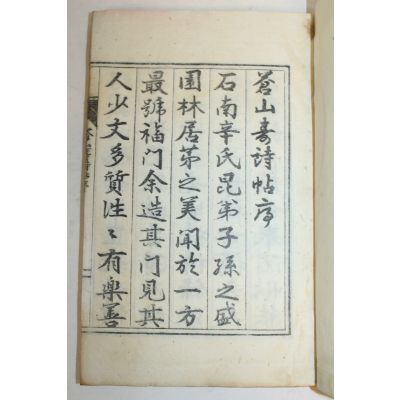 蒼山壽詩帖序
石南辛氏昆弟子孫之盛
園林居第之美聞於一方
最號福門余造其門見其
人少文多質性〻有樂善